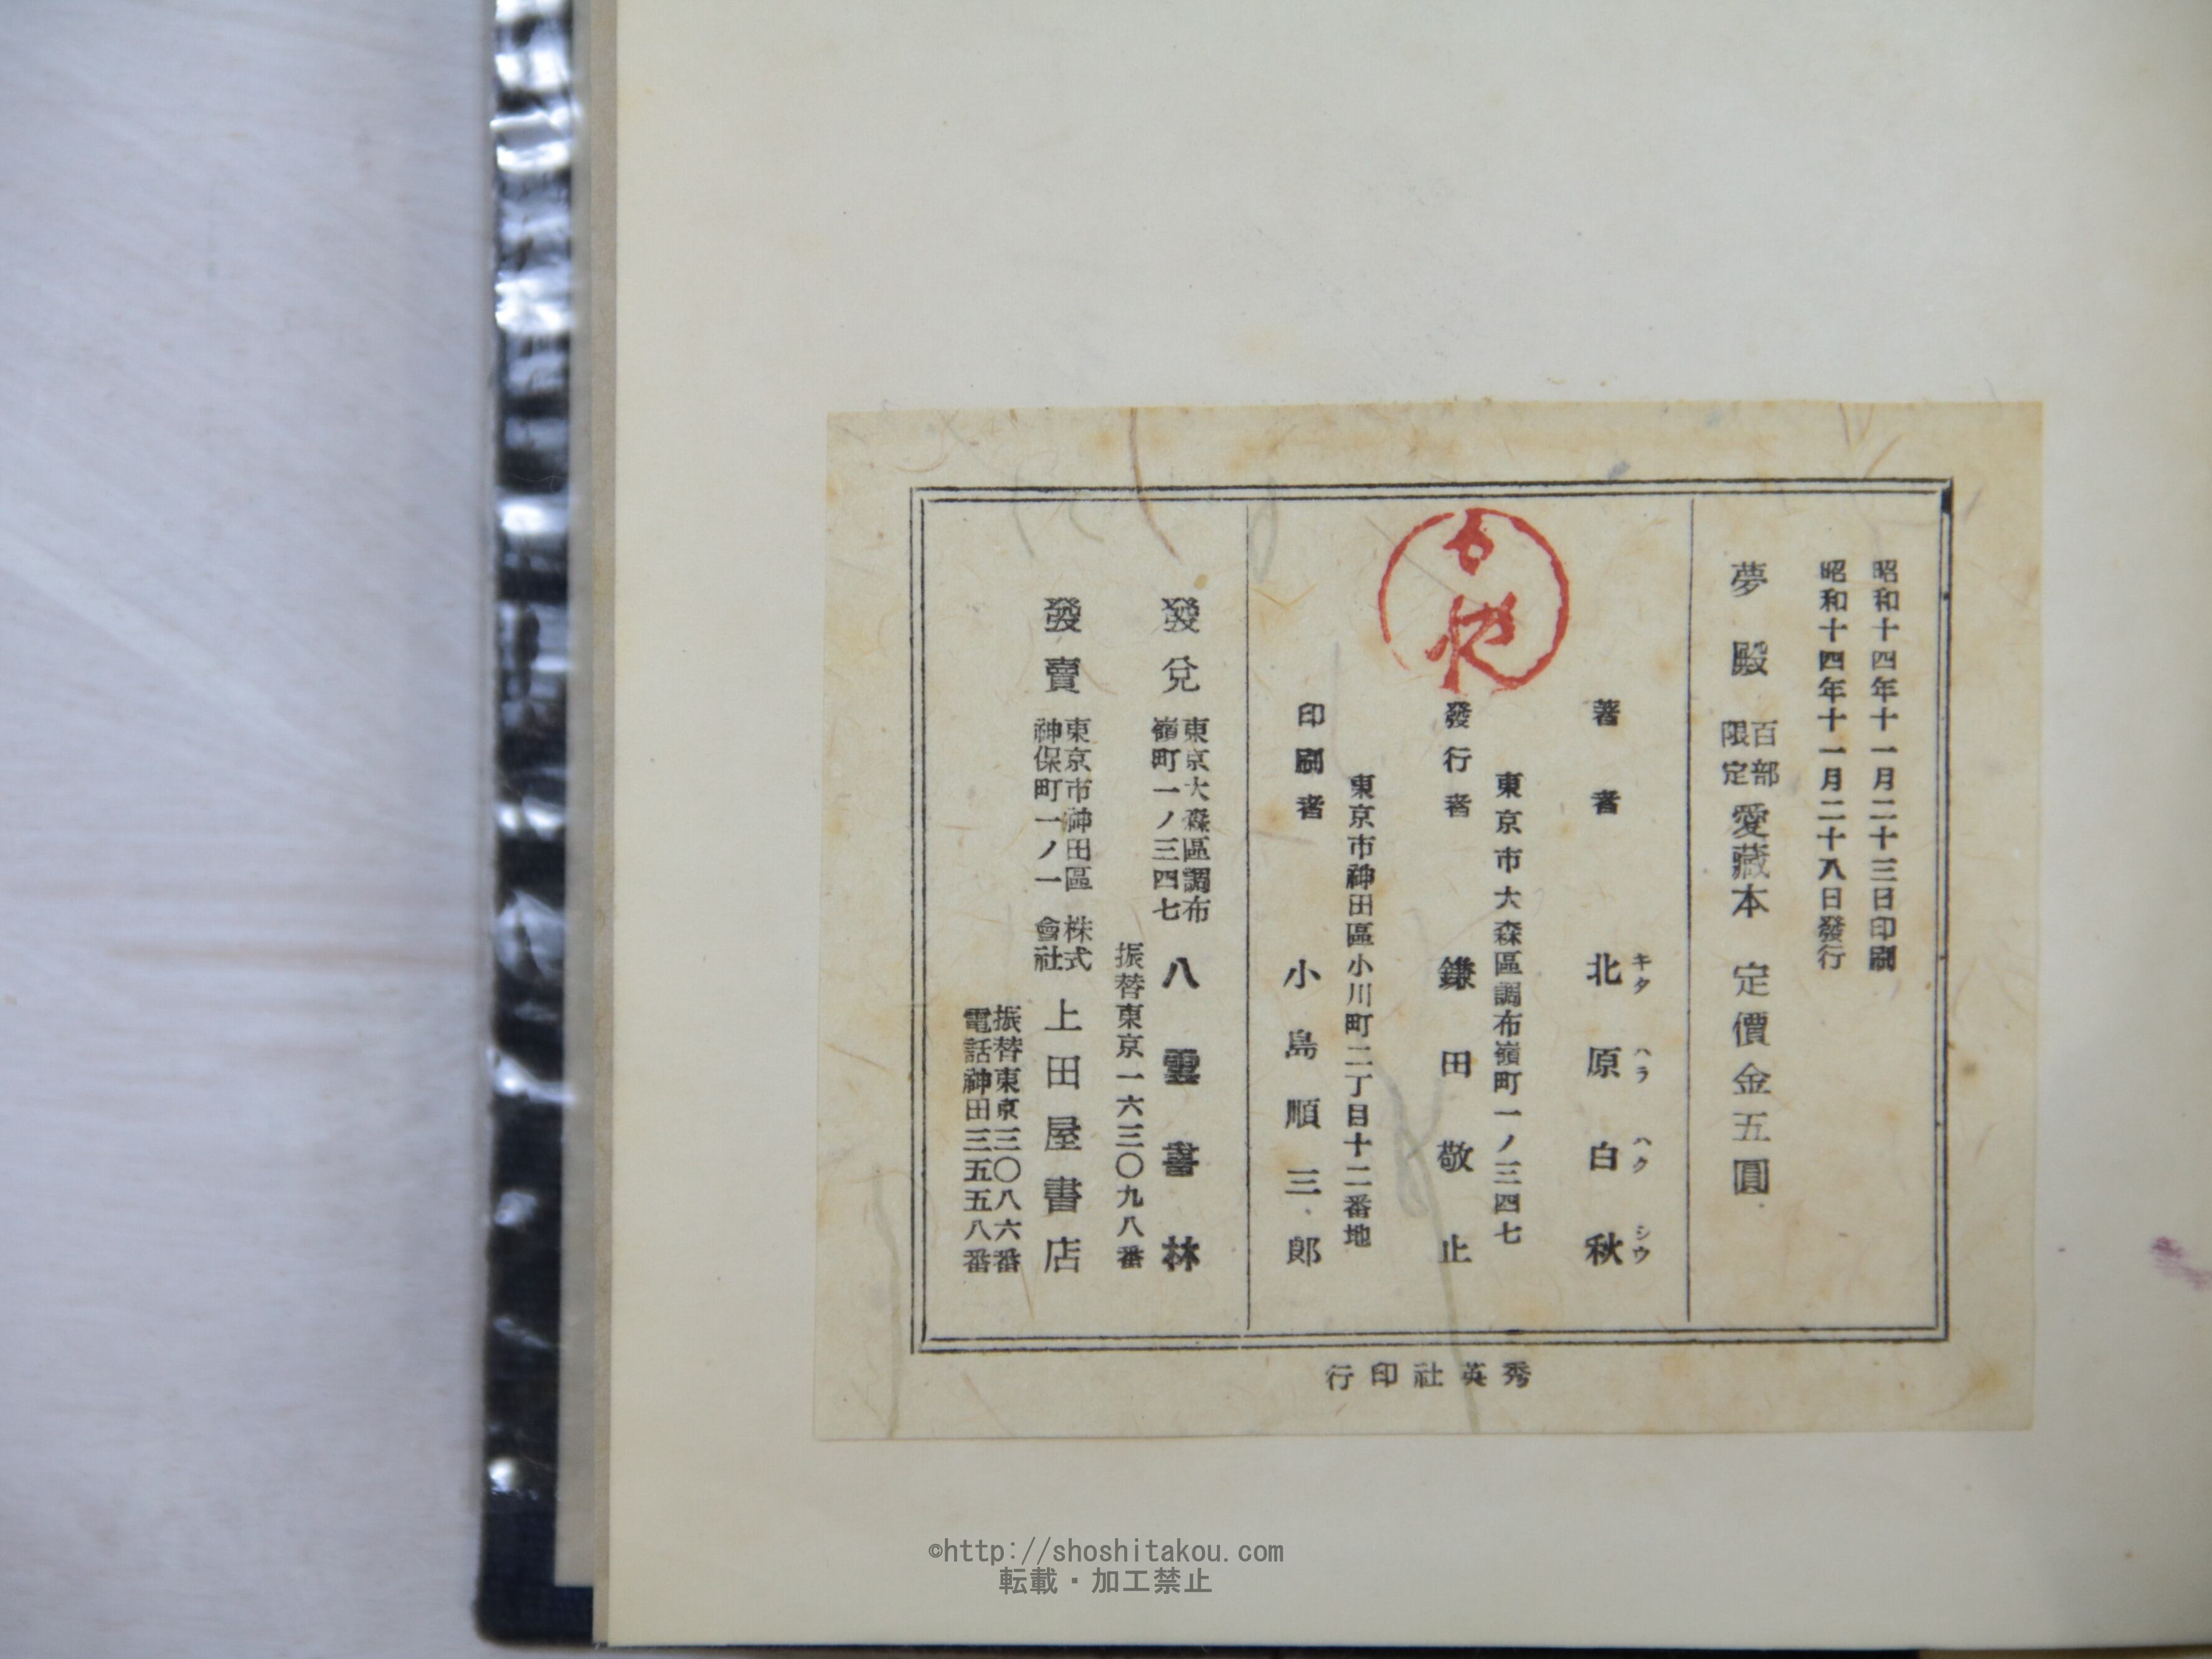 昭和十四年十一月二十三日印刷
昭和十四年十一月二十八日發行
夢殿 百部限定 愛藏本 定價金五圓
著者 北原白秋
キタ ハラ ハク シウ
東京市大森區調布嶺町一ノ三四七
發行者 鎌田敬止
東京市神田區小川町二丁目十二番地
印刷者 小島順三郎
發兌 東京大森區調布嶺町一ノ三四七 八雲書林
振替東京一六三〇九八番
發賣 東京市神田區神保町一ノ一 株式會社 上田屋書店
振替東京三〇八六番
電話神田三五五八番
秀英社印行
©http://shoshitakou.com
転載・加工禁止